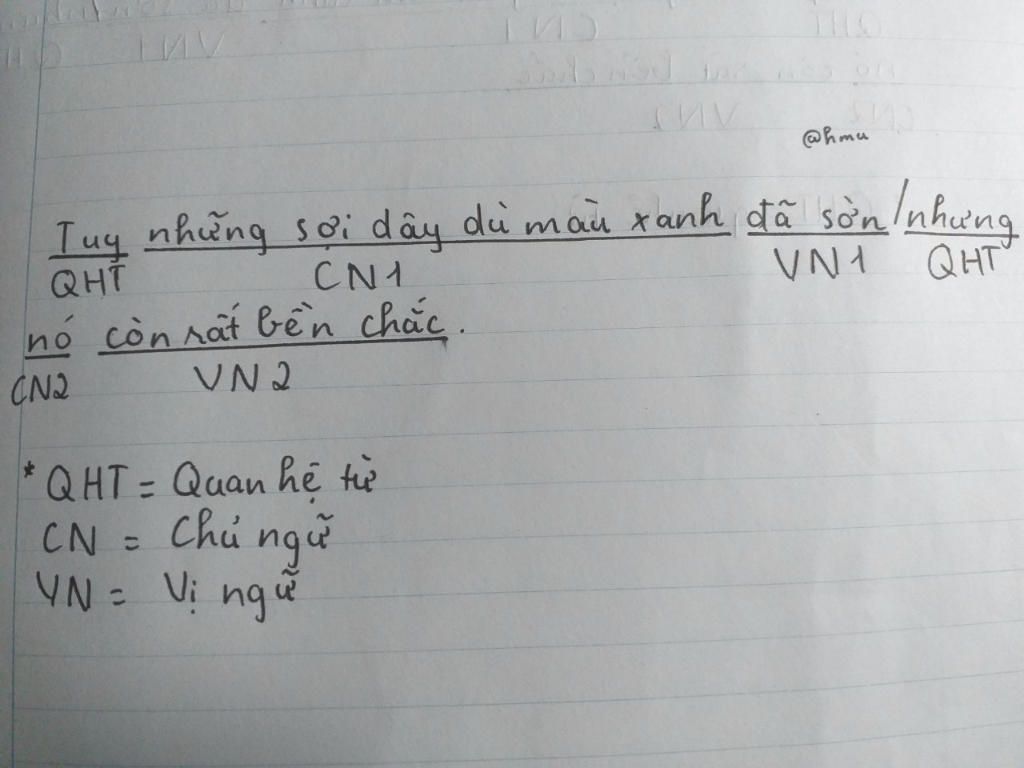 @hmu
Tuy những sợi dây dù màu xanh đã sờn / nhưng
QHT CN1 VN1 QHT
nó còn rất bền chắc.
CN2 VN2
* QHT = Quan hệ từ
CN = Chủ ngữ
VN = Vị ngữ